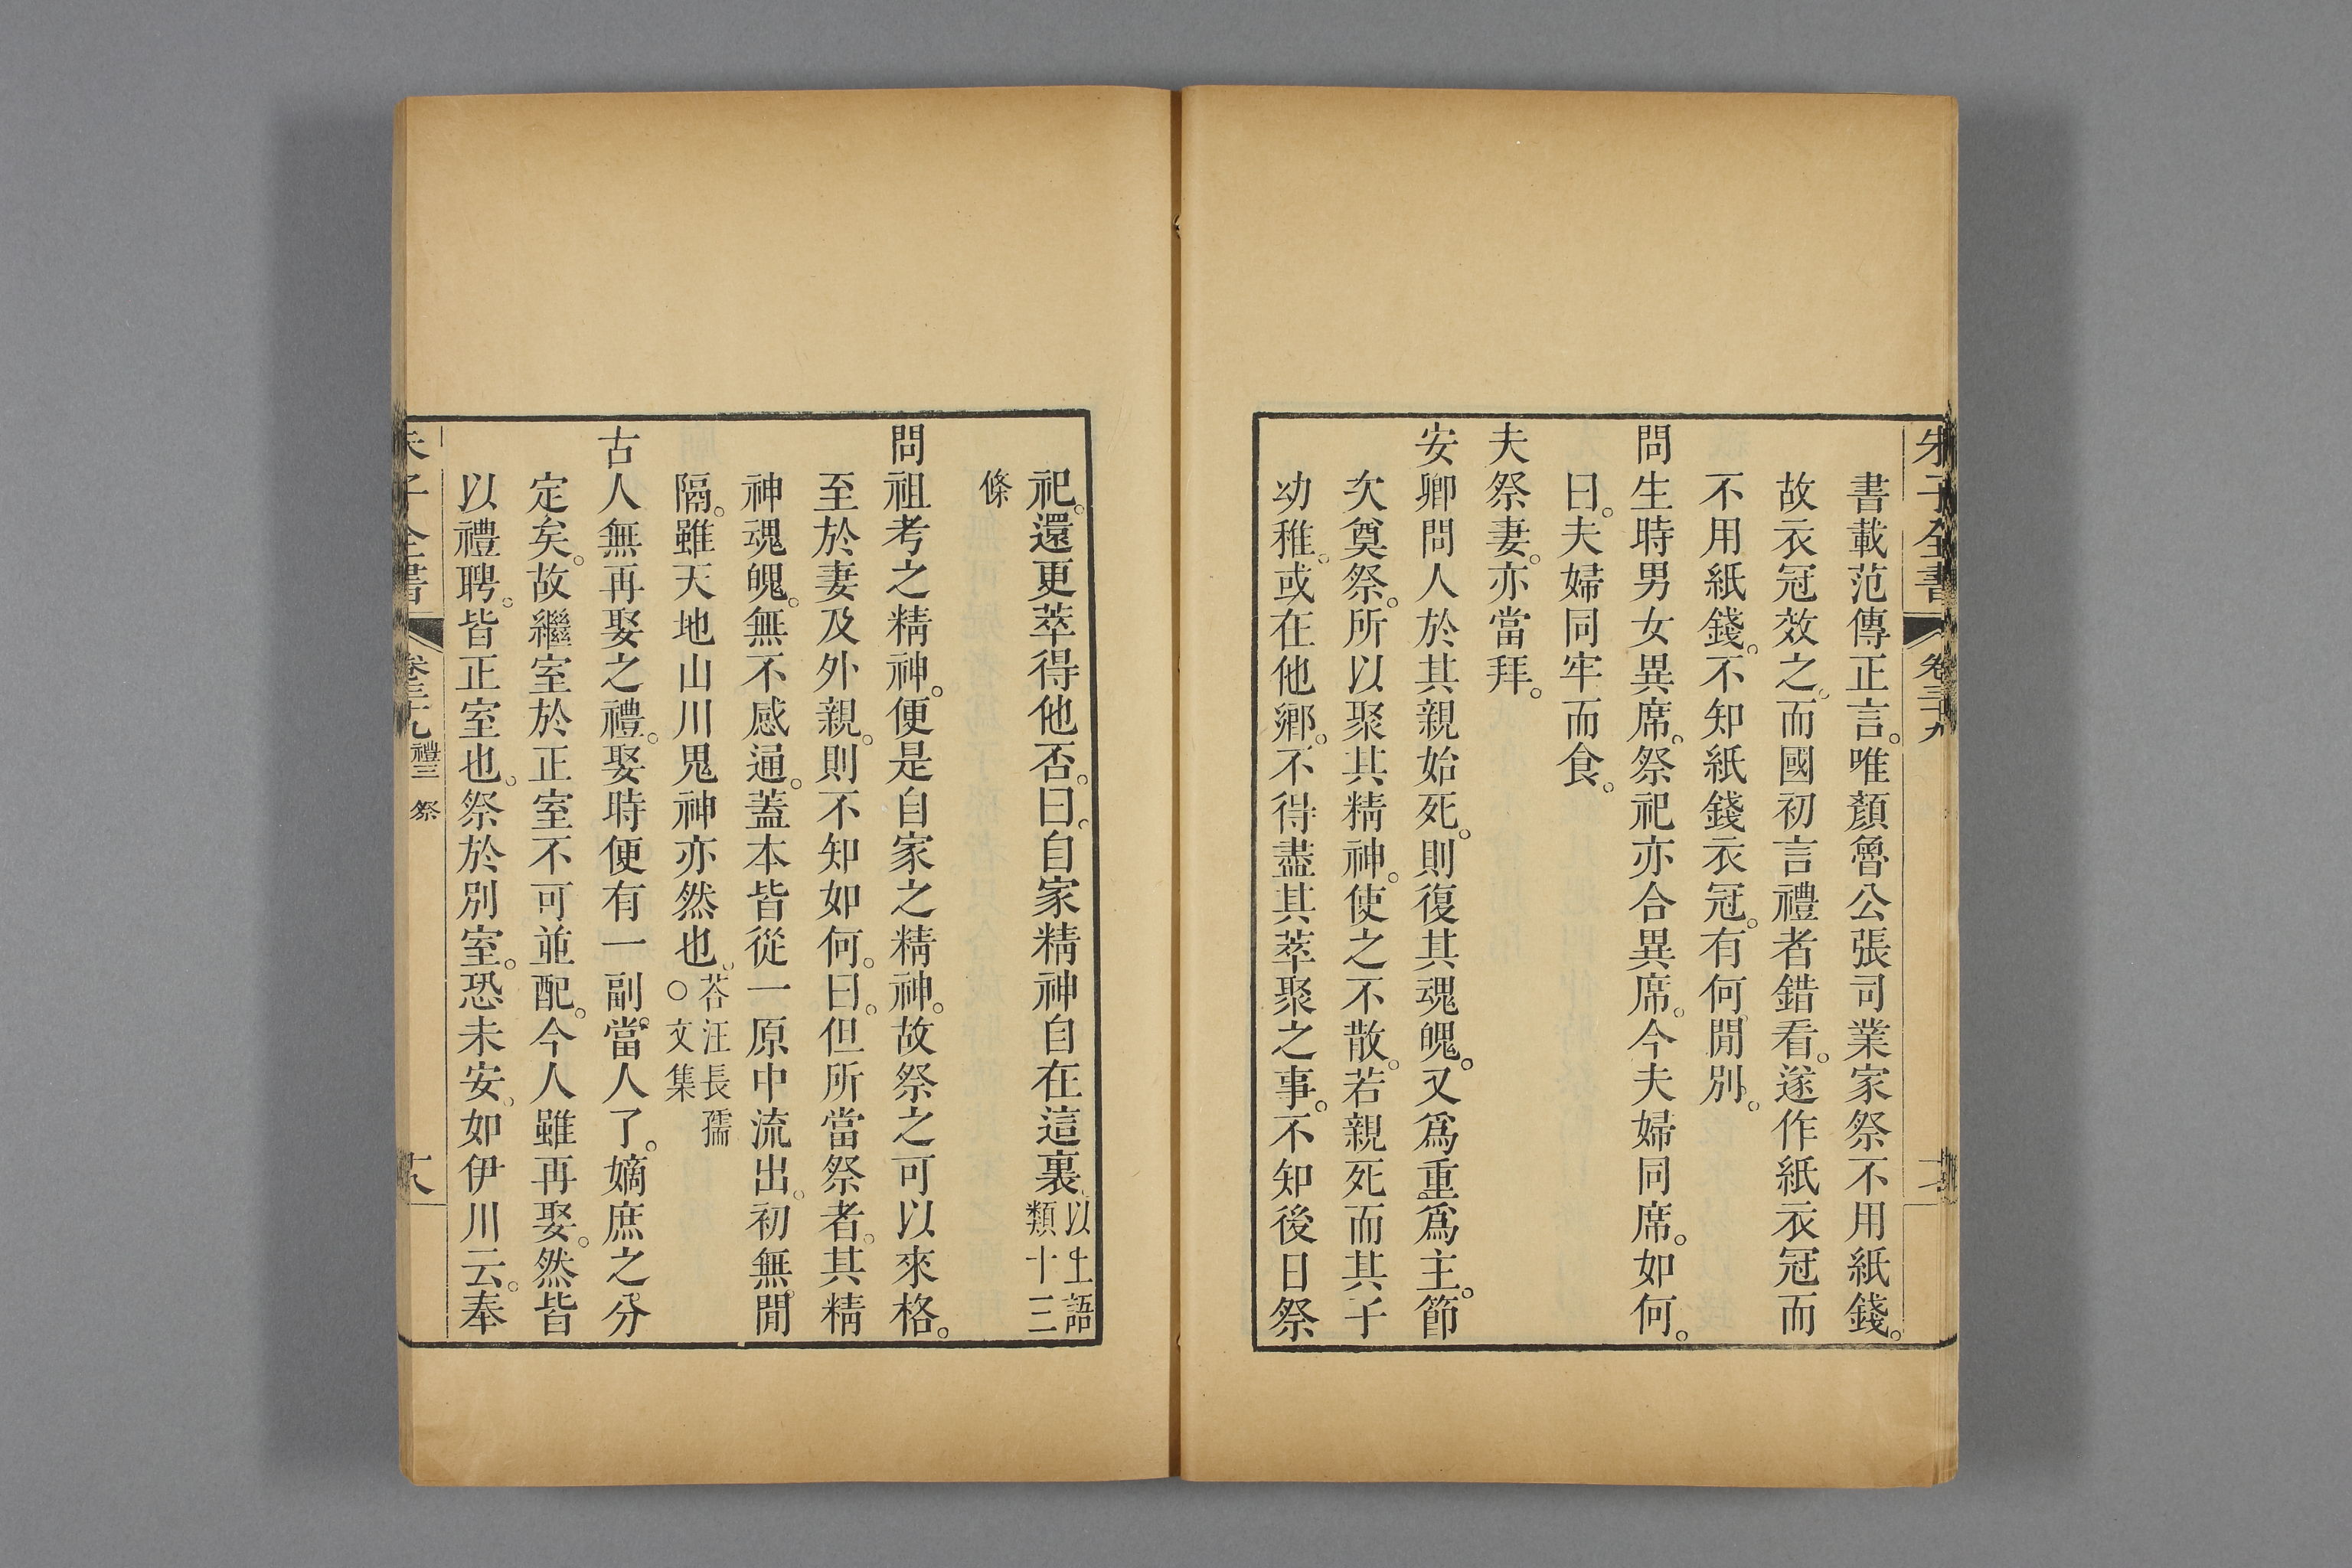 朱子全書 卷三十九
書載范傳正言。唯顏魯公張司業家祭不用紙錢。
故衣冠效之。而國初言禮者錯看。遂作紙衣冠而
不用紙錢。不知紙錢衣冠。有何閒別。
問生時男女異席。祭祀亦合異席。今夫婦同席。如何。
曰。夫婦同牢而食。
夫祭妻。亦當拜。
安卿問人於其親始死。則復其魂魄。又爲重爲主。節
次奠祭。所以聚其精神。使之不散。若親死而其子
幼稚。或在他鄉。不得盡其萃聚之事。不知後日祭
祀。還更萃得他否。曰。自家精神自在這裏。以上語
類十三
條
問祖考之精神。便是自家之精神。故祭之可以來格。
至於妻及外親。則不知如何。曰。但所當祭者。其精
神魂魄。無不感通。蓋本皆從一原中流出。初無閒
隔。雖天地山川鬼神亦然也。荅汪長孺
○文集
古人無再娶之禮。娶時便有一副當人了。嫡庶之分
定矣。故繼室於正室不可並配。今人雖再娶。然皆
以禮聘。皆正室也。祭於別室。恐未安。如伊川云。奉
朱子全書 卷三十九 禮三 祭 十八